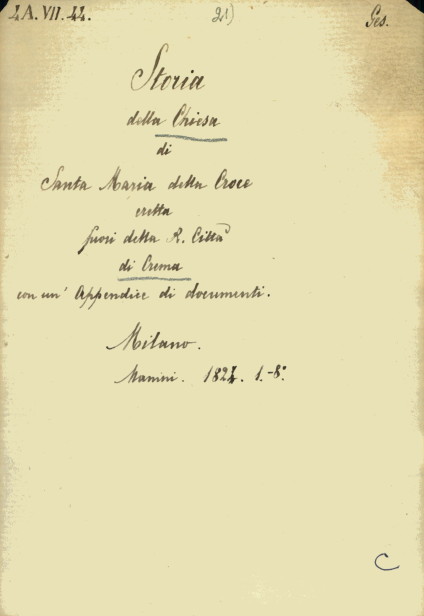 4 A. VII. 44.
21)
Ges.
Storia
della Chiesa
di
Santa Maria della Croce
eretta
fuori della R. Città
di Crema
con un' Appendice di documenti.
Milano.
Manini. 1824. 1.-8°.
C